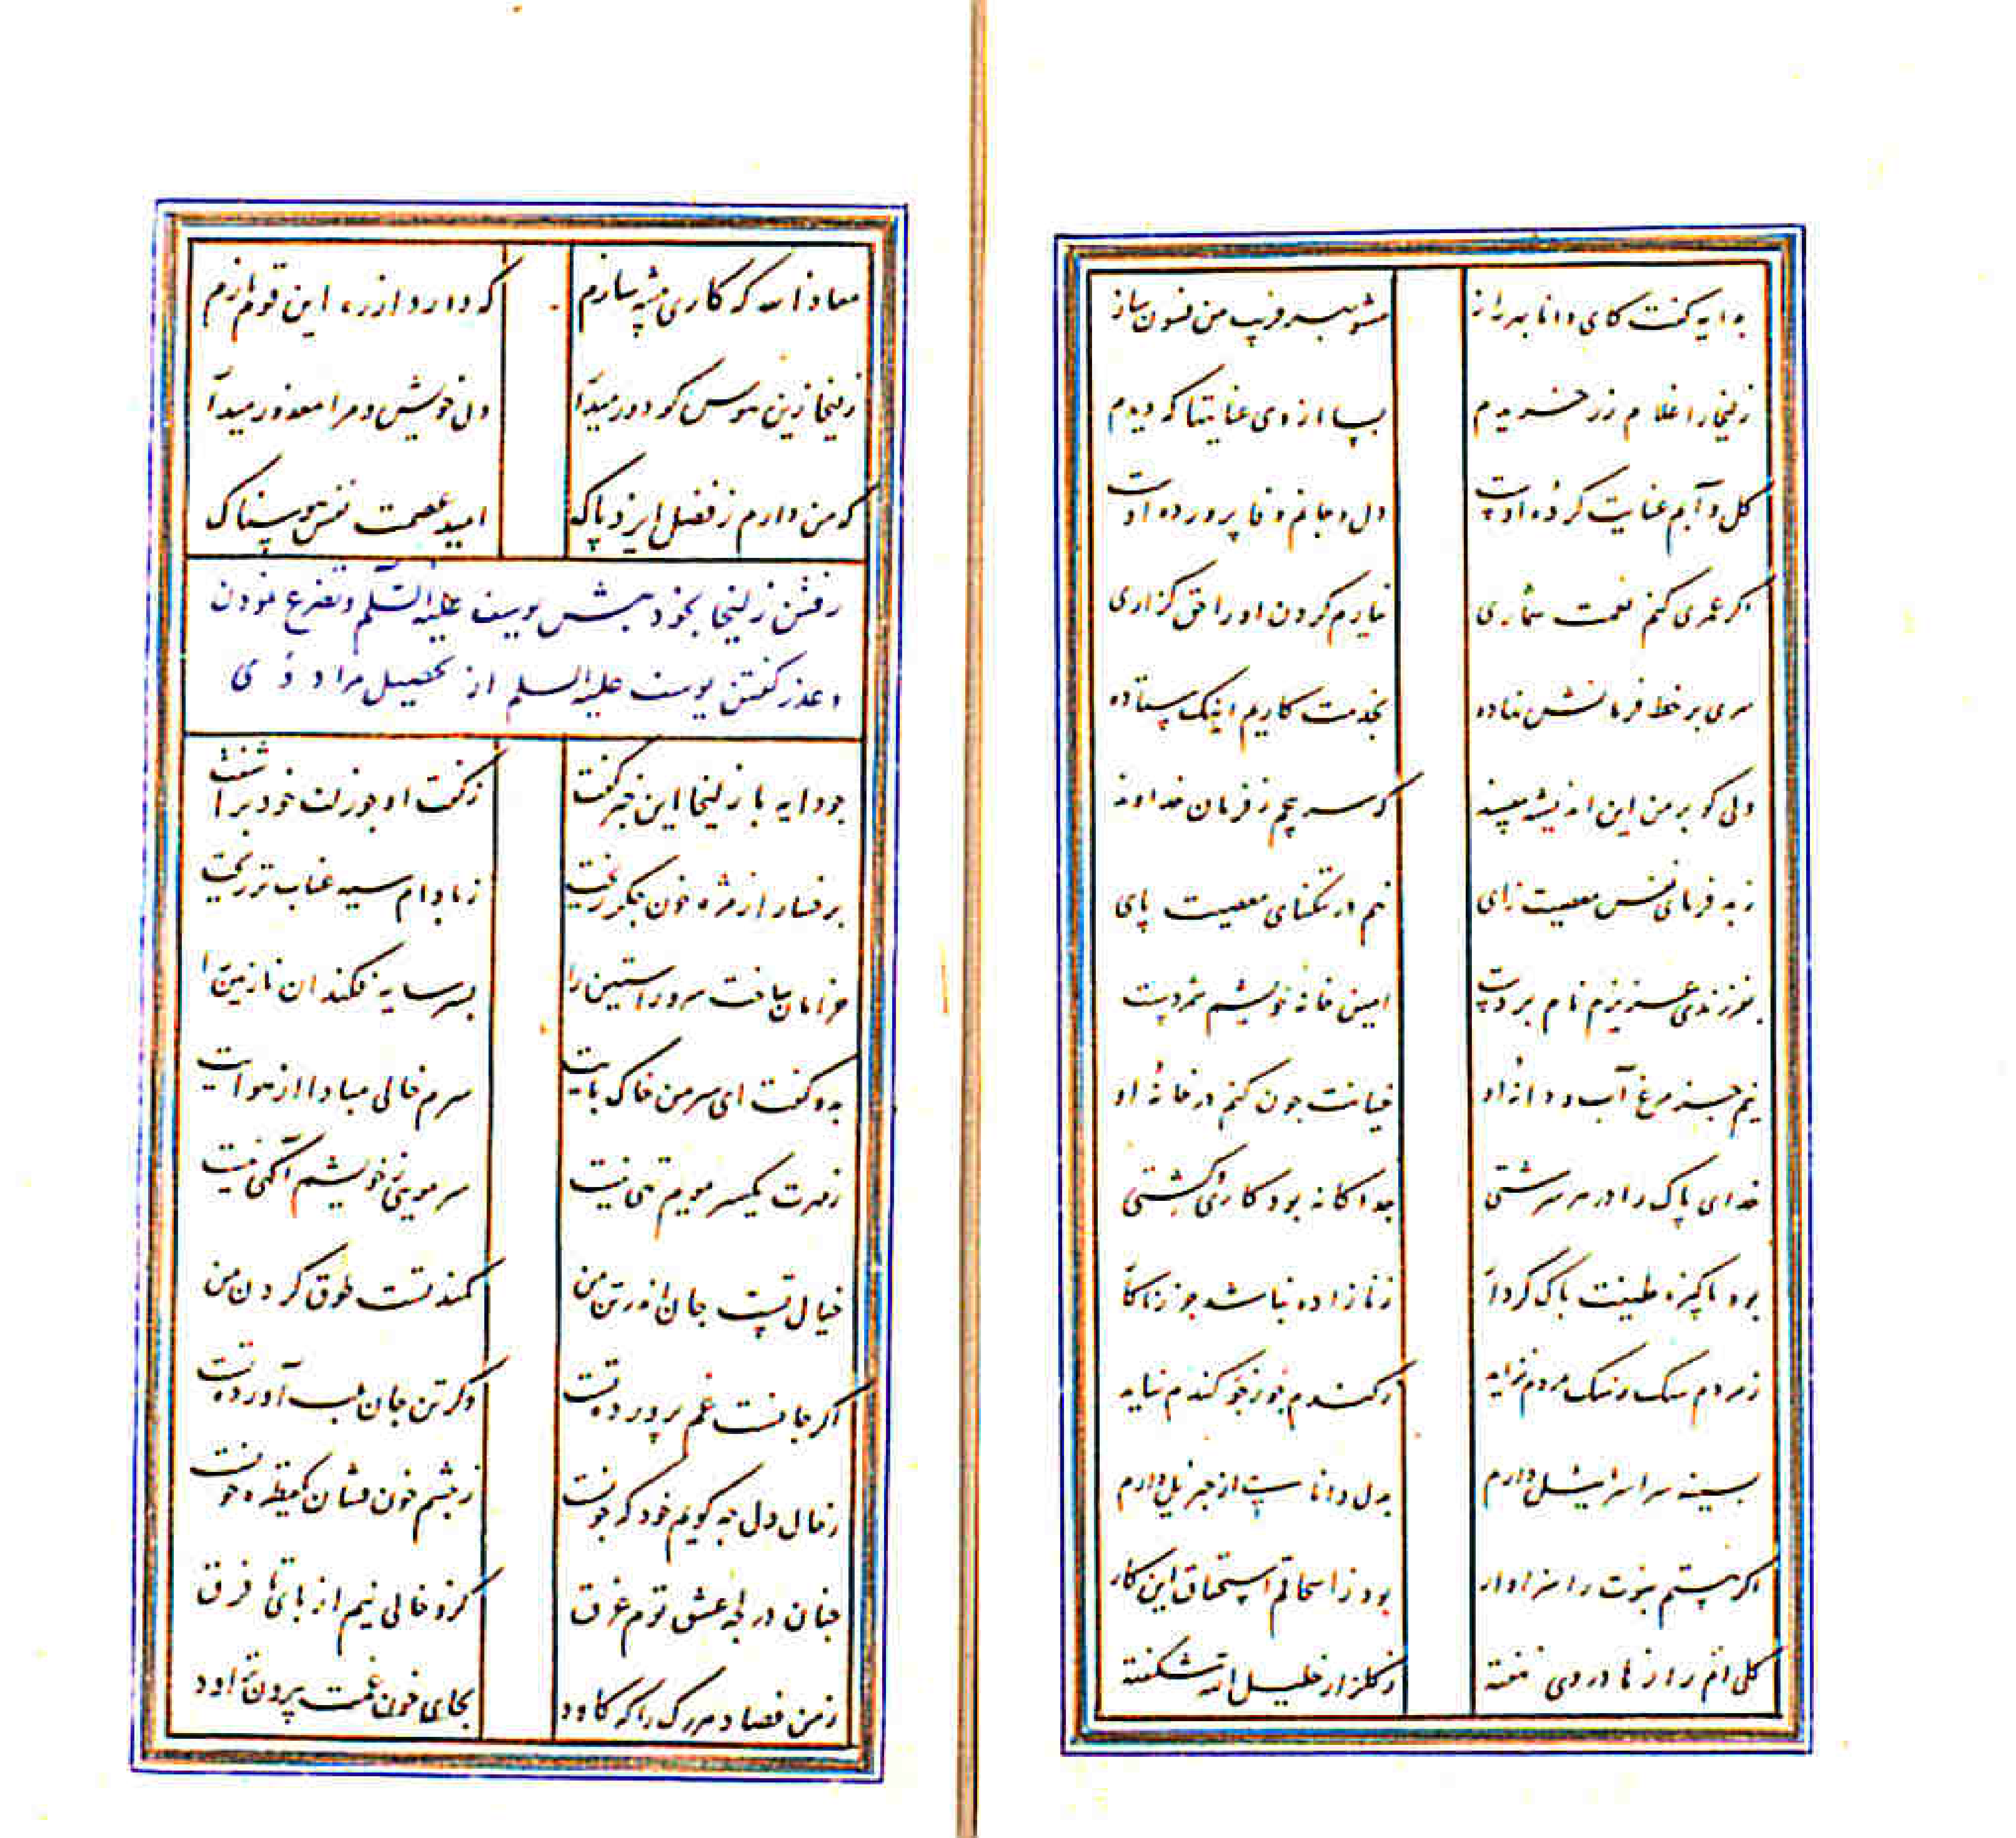 بدایه کفت کای دانا بهر راز مشو بهر فریب من فسون ساز
زلیخا را غلام زر خریدم بسا از وی عنایتها که دیدم
کل و آبم عنایت کرده اوست دل و جانم وفا پرورده اوست
اکر عمری کنم نعمت شماری نیارم کردن او را حق کزاری
سری بر خط فرمانش نهاده بخدمت کاریم اینک ستاده
ولی کو بر من این اندیشه مپسند که سر پیچم ز فرمان خداوند
ز بد فرمای نفس معصیت زای نهم در تنکنای معصیت پای
بفرزندی عزیزم نام بردست امین خانه خویشم شمردست
نیم جز مرغ آب و دانهٔ او خیانت چون کنم در خانهٔ او
خدای پاک را در هر سرشتی جداکانه بود کاری و کشتی
بود پاکیزه طینت پاک کردار زنازاده نباشد جز زناکار
ز مردم سک ز سک مردم نزاید ز کندم جو ز جو کندم نیاید
بسینه سر اسرائیل دارم بدل دانایی از جبریل دارم
اکر هستم نبوت را سزاوار بود ز اسحاقم استحقاق این کار
کلی ام راز ها در وی نهفته ز کلزار خلیل الله شکفته
معاذ الله که کاری پیشه سازم که دارد از ره این قوم بازم
زلیخا زین هوس کو دور میدار دل خویش و مرا معذور میدار
که من دارم ز فضل ایزد پاک امید عصمت نفس هوسناک
رفتن زلیخا بخود پیش یوسف علیه السلم و تضرع نمودن
و عذر کفتن یوسف علیه السلم از تحصیل مراد وی
جو دایه با زلیخا این خبر کفت ز کفت او جو زلف خود بر آشفت
برخسار از مژه خون جکر ریخت ز بادام سیه عناب تر ریخت
خرامان ساخت سرو راستین را بسر سایه فکند ان نازنین را
بدو کفت ای سر من خاک بایت سرم خالی مبادا از هوایت
ز مهرت یکسر مویم تهی نیست سر مویی ز خویشم آکهی نیست
خیال تست جان اندر تن من کمند تست طوق کردن من
اکر جانست غم پرورده تست وکر تن جان بلب آورده تست
ز حال دل جه کویم خود که جونست ز جشم خون فشان یک قطره خونست
جنان در لجه عشق توم غرق کزو خالی نیم از بای تا فرق
ز من فصاد هر رک را که کاود بجای خون غمت بیرون تراود